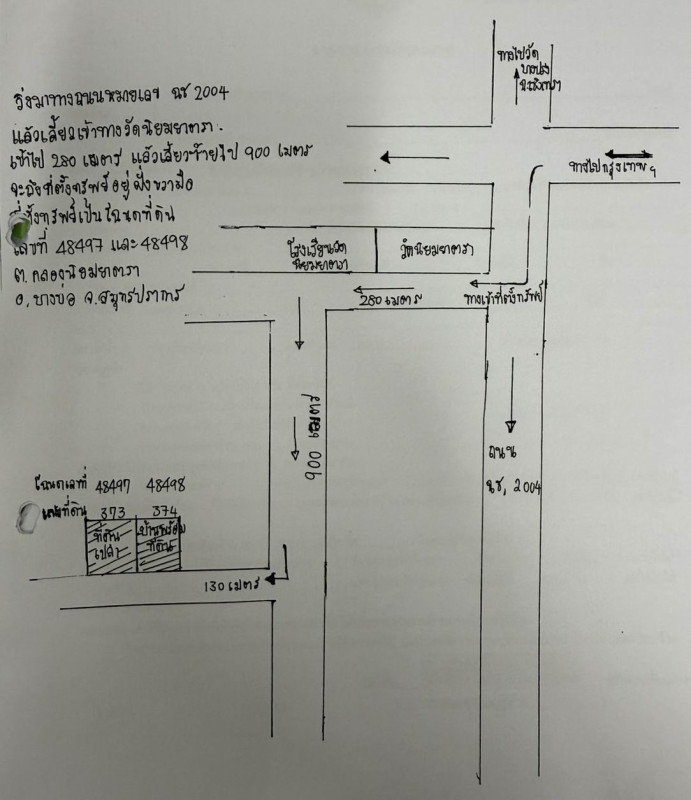 วิ่งมาทางถนนหมายเลข ฉช 2004
แล้วเลี้ยวเข้าทางวัดนิยมยาตรา.
เข้าไป 280 เมตร แล้วเลี้ยวซ้ายไป 900 เมตร
จะถึงที่ตั้งทรัพย์อยู่ฝั่งขวามือ
ที่ตั้งทรัพย์เป็นโฉนดที่ดิน
เลขที่ 48497 และ 48498
ต. คลองนิยมยาตรา
อ, บางบ่อ จ.สมุทรปราการ
ทางไปวัด
จ.ฉะเชิงเทรา
ทางไปกรุงเทพฯ
โรงเรียนวัด
นิยมยาตรา
วัดนิยมยาตรา
280 เมตร
ทางเข้าที่ตั้งทรัพย์
900 เมตร
ถนน
ฉช, 2004
โฉนดเลขที่ 48497 48498
เลขที่ดิน 373 374
ที่ดิน
เปล่า
บ้านพร้อม
ที่ดิน
130 เมตร